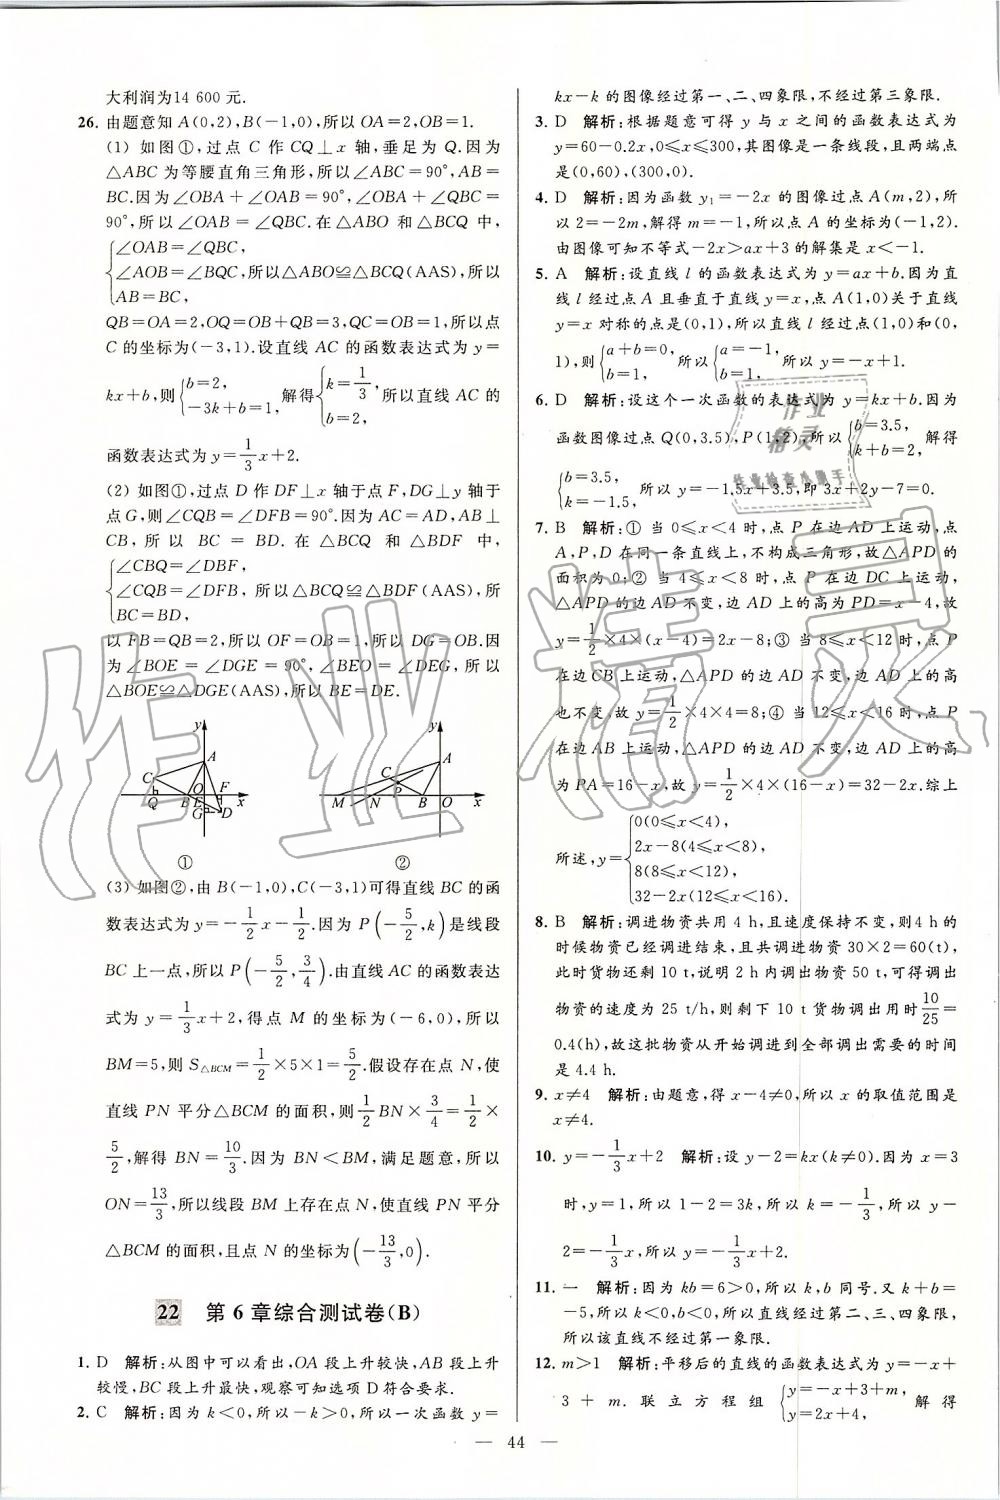 大利润为14 600 元.
26. 由题意知 A(0,2),B(-1,0),所以 OA=2,OB=1.
(1) 如图①,过点 C 作 CQ⊥x 轴,垂足为 Q.因为
△ABC 为等腰直角三角形,所以∠ABC=90°,AB=
BC.因为∠OBA+∠OAB=90°,∠OBA+∠QBC=
90°,所以∠OAB=∠QBC.在△ABO 和△BCQ 中,
{∠OAB=∠QBC,
∠AOB=∠BQC,所以△ABO≌△BCQ(AAS),所以
AB=BC,
QB=OA=2,OQ=OB+QB=3,QC=OB=1,所以点
C 的坐标为(-3,1).设直线 AC 的函数表达式为 y=
kx+b,则{b=2, -3k+b=1,解得{k=1/3, b=2,所以直线 AC 的
函数表达式为 y=1/3x+2.
(2) 如图①,过点 D 作 DF⊥x 轴于点 F,DG⊥y 轴于
点G,则∠CQB=∠DFB=90°.因为 AC=AD,AB⊥
CB,所以 BC=BD.在△BCQ 和△BDF 中,
{∠CBQ=∠DBF,
∠CQB=∠DFB,所以△BCQ≌△BDF(AAS),所
BC=BD,
以 FB=QB=2,所以 OF=OB=1,所以 DG=OB.因
为∠BOE=∠DGE=90°,∠BEO=∠DEG,所以
△BOE≌△DGE(AAS),所以 BE=DE.
y A C F O Q B E x G D
①
y A C P M N B O x
②
(3) 如图②,由 B(-1,0),C(-3,1)可得直线 BC 的函
数表达式为 y=-1/2x-1/2.因为 P(-5/2,k)是线段
BC 上一点,所以 P(-5/2,3/4).由直线 AC 的函数表达
式为 y=1/3x+2,得点 M 的坐标为(-6,0),所以
BM=5,则 S△BCM=1/2×5×1=5/2.假设存在点 N,使
直线 PN 平分△BCM 的面积,则1/2BN×3/4=1/2×
5/2,解得 BN=10/3.因为 BN<BM,满足题意,所以
ON=13/3,所以线段 BM 上存在点 N,使直线 PN 平分
△BCM 的面积,且点 N 的坐标为(-13/3,0).
22 第 6 章综合测试卷(B)
1. D 解析:从图中可以看出,OA 段上升较快,AB 段上升
较慢,BC 段上升最快,观察可知选项 D 符合要求.
2. C 解析:因为 k<0,所以-k>0,所以一次函数 y=
kx-k 的图像经过第一、二、四象限,不经过第三象限.
3. D 解析:根据题意可得 y 与 x 之间的函数表达式为
y=60-0.2x,0≤x≤300,其图像是一条线段,且两端点
是(0,60),(300,0).
4. D 解析:因为函数 y₁=-2x 的图像过点 A(m,2),所
以 2=-2m,解得 m=-1,所以点 A 的坐标为(-1,2).
由图像可知不等式-2x>ax+3 的解集是 x<-1.
5. A 解析:设直线 l 的函数表达式为 y=ax+b.因为直
线 l 经过点 A 且垂直于直线 y=x,点 A(1,0)关于直线
y=x 对称的点是(0,1),所以直线 l 经过点(1,0)和(0,
1),则{a+b=0, b=1,所以{a=-1, b=1,所以 y=-x+1.
6. D 解析:设这个一次函数的表达式为 y=kx+b.因为
函数图像过点 Q(0,3.5),P(1,2),所以{b=3.5, k+b=2,解得
{b=3.5, k=-1.5,所以 y=-1.5x+3.5,即 3x+2y-7=0.
7. B 解析:① 当 0≤x<4 时,点 P 在边 AD 上运动,点
A,P,D 在同一条直线上,不构成三角形,故△APD 的
面积为 0;② 当 4≤x<8 时,点 P 在边 DC 上运动,
△APD 的边 AD 不变,边 AD 上的高为 PD=x-4,故
y=1/2×4×(x-4)=2x-8;③ 当 8≤x<12 时,点 P
在边 CB 上运动,△APD 的边 AD 不变,边 AD 上的高
也不变,故 y=1/2×4×4=8;④ 当 12≤x<16 时,点 P
在边 AB 上运动,△APD 的边 AD 不变,边 AD 上的高
为 PA=16-x,故 y=1/2×4×(16-x)=32-2x.综上
所述,y={0(0≤x<4),
2x-8(4≤x<8),
8(8≤x<12),
32-2x(12≤x<16).
8. B 解析:调进物资共用 4 h,且速度保持不变,则4 h的
时候物资已经调进结束,且共调进物资 30×2=60(t),
此时货物还剩 10 t,说明 2 h内调出物资 50 t,可得调出
物资的速度为 25 t/h,则剩下 10 t 货物调出用时10/25=
0.4(h),故这批物资从开始调进到全部调出需要的时间
是 4.4 h.
9. x≠4 解析:由题意,得 x-4≠0,所以 x 的取值范围是
x≠4.
10. y=-1/3x+2 解析:设 y-2=kx(k≠0).因为 x=3
时,y=1,所以 1-2=3k,所以 k=-1/3,所以 y-
2=-1/3x,所以 y=-1/3x+2.
11. 一 解析:因为 kb=6>0,所以 k,b 同号.又 k+b=
-5,所以 k<0,b<0,所以直线经过第二、三、四象限,
所以该直线不经过第一象限.
12. m>1 解析:平移后的直线的函数表达式为 y=-x+
3+m.联立方程组{y=-x+3+m, y=2x+4,解得
— 44 —
作业精灵
作业检查小助手
作业精灵